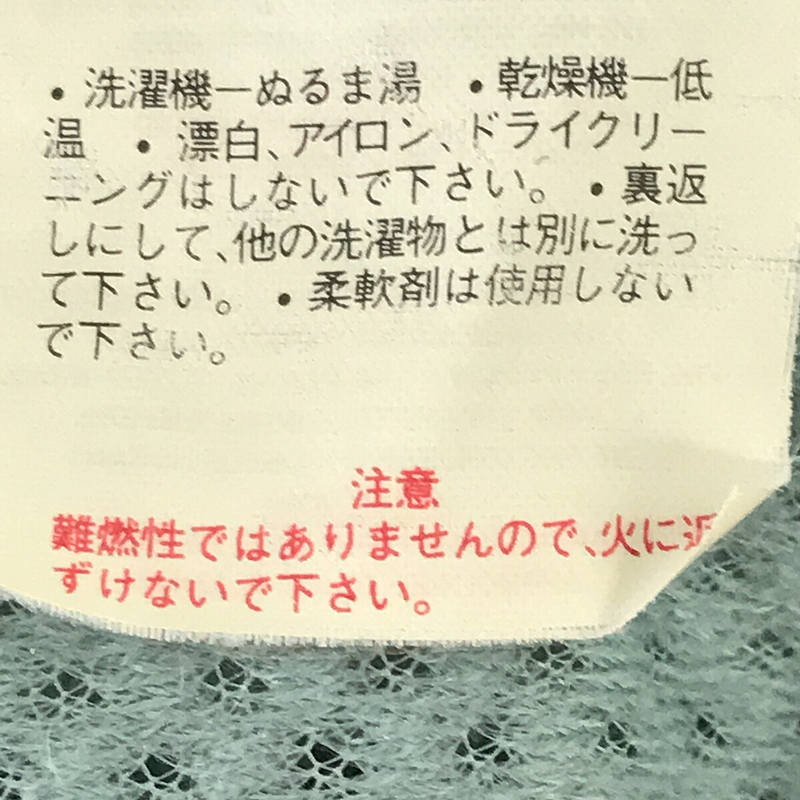 ・洗濯機ーぬるま湯 ・乾燥機ー低
温 ・漂白、アイロン、ドライクリー
ニングはしないで下さい。・裏返
しにして、他の洗濯物とは別に洗っ
て下さい。・柔軟剤は使用しない
で下さい。
注意
難燃性ではありませんので、火に近
ずけないで下さい。